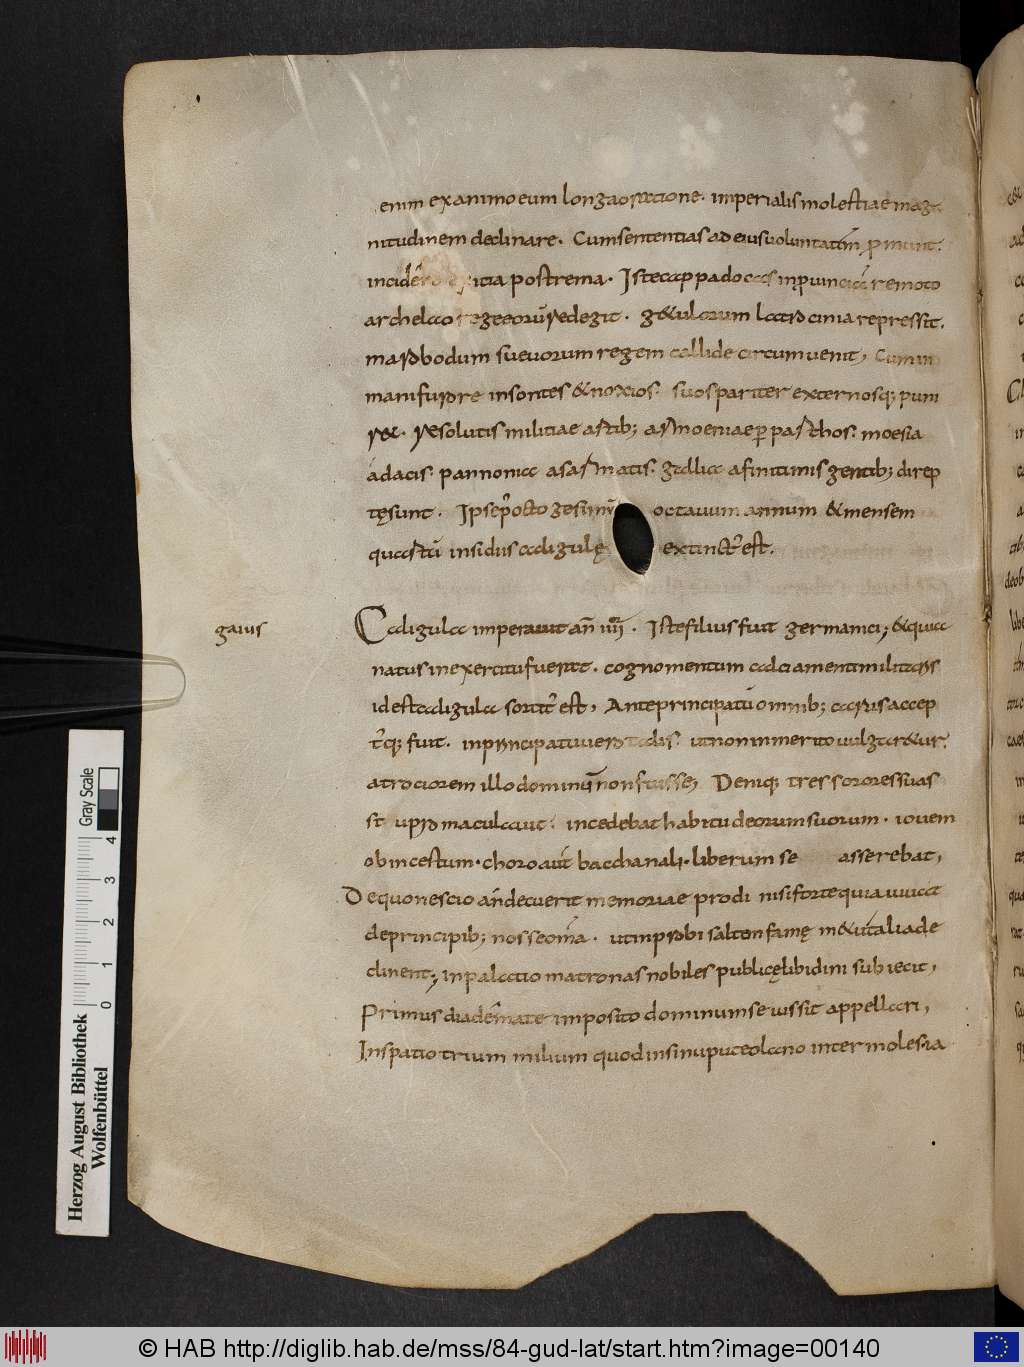 enim ex animo eum longa oratione. imperialis molestiae mag
nitudinem declinare. Cum sententias ad eius voluntatem promunt.
incidere exitia postrema. Iste cappadocas in puinciā remoto
archelao rege eorū redegit. getulorum latrocinia repressit.
marobodum suevorum regem callide circumvenit, Cum in
mani furore insontes & noxios. suos pariter externosq; puni
r&. resolutis militiae artib; armoeniae p parthos. moesia
a dacis. pannonia a sarmatis. gallia a finitimis gentib; direp
tę sunt. Ipse p octogesimū octavum annum & mensem
quartū insidiis caligulę extinctꝰ est.
gaius
Caligula imperavit an̄ iiii. Iste filius fuit germanici, & quia
natus in exercitu fuerat. cognomentum calciamenti militaris
id est caligula sortitꝰ est, Ante principatū omnib; carus accep
tꝰq; fuit. in principatu vero talis. ut non inmerito vulgar&ur.
atrociorem illo dominū non fuisse, Denique tres sorores suas
stupro maculavit. incedebat habitu deorum suorum. iovem
ob incestum. choro aut bacchanali. liberum se asserebat,
De quo nescio an decuerit memoriae prodi nisi forte quia iuvat
de principib; nosse omnia. ut improbi saltem famę m&u talia de
clinent; in palatio matronas nobiles publicę libidini subiecit,
Primus diademate imposito dominum se iussit appellari,
In spatio trium milium quod in sinu puteolano inter moles ia
Herzog August Bibliothek
Wolfenbüttel
0 1 2 3 4
Gray Scale
© HAB http://diglib.hab.de/mss/84-gud-lat/start.htm?image=00140